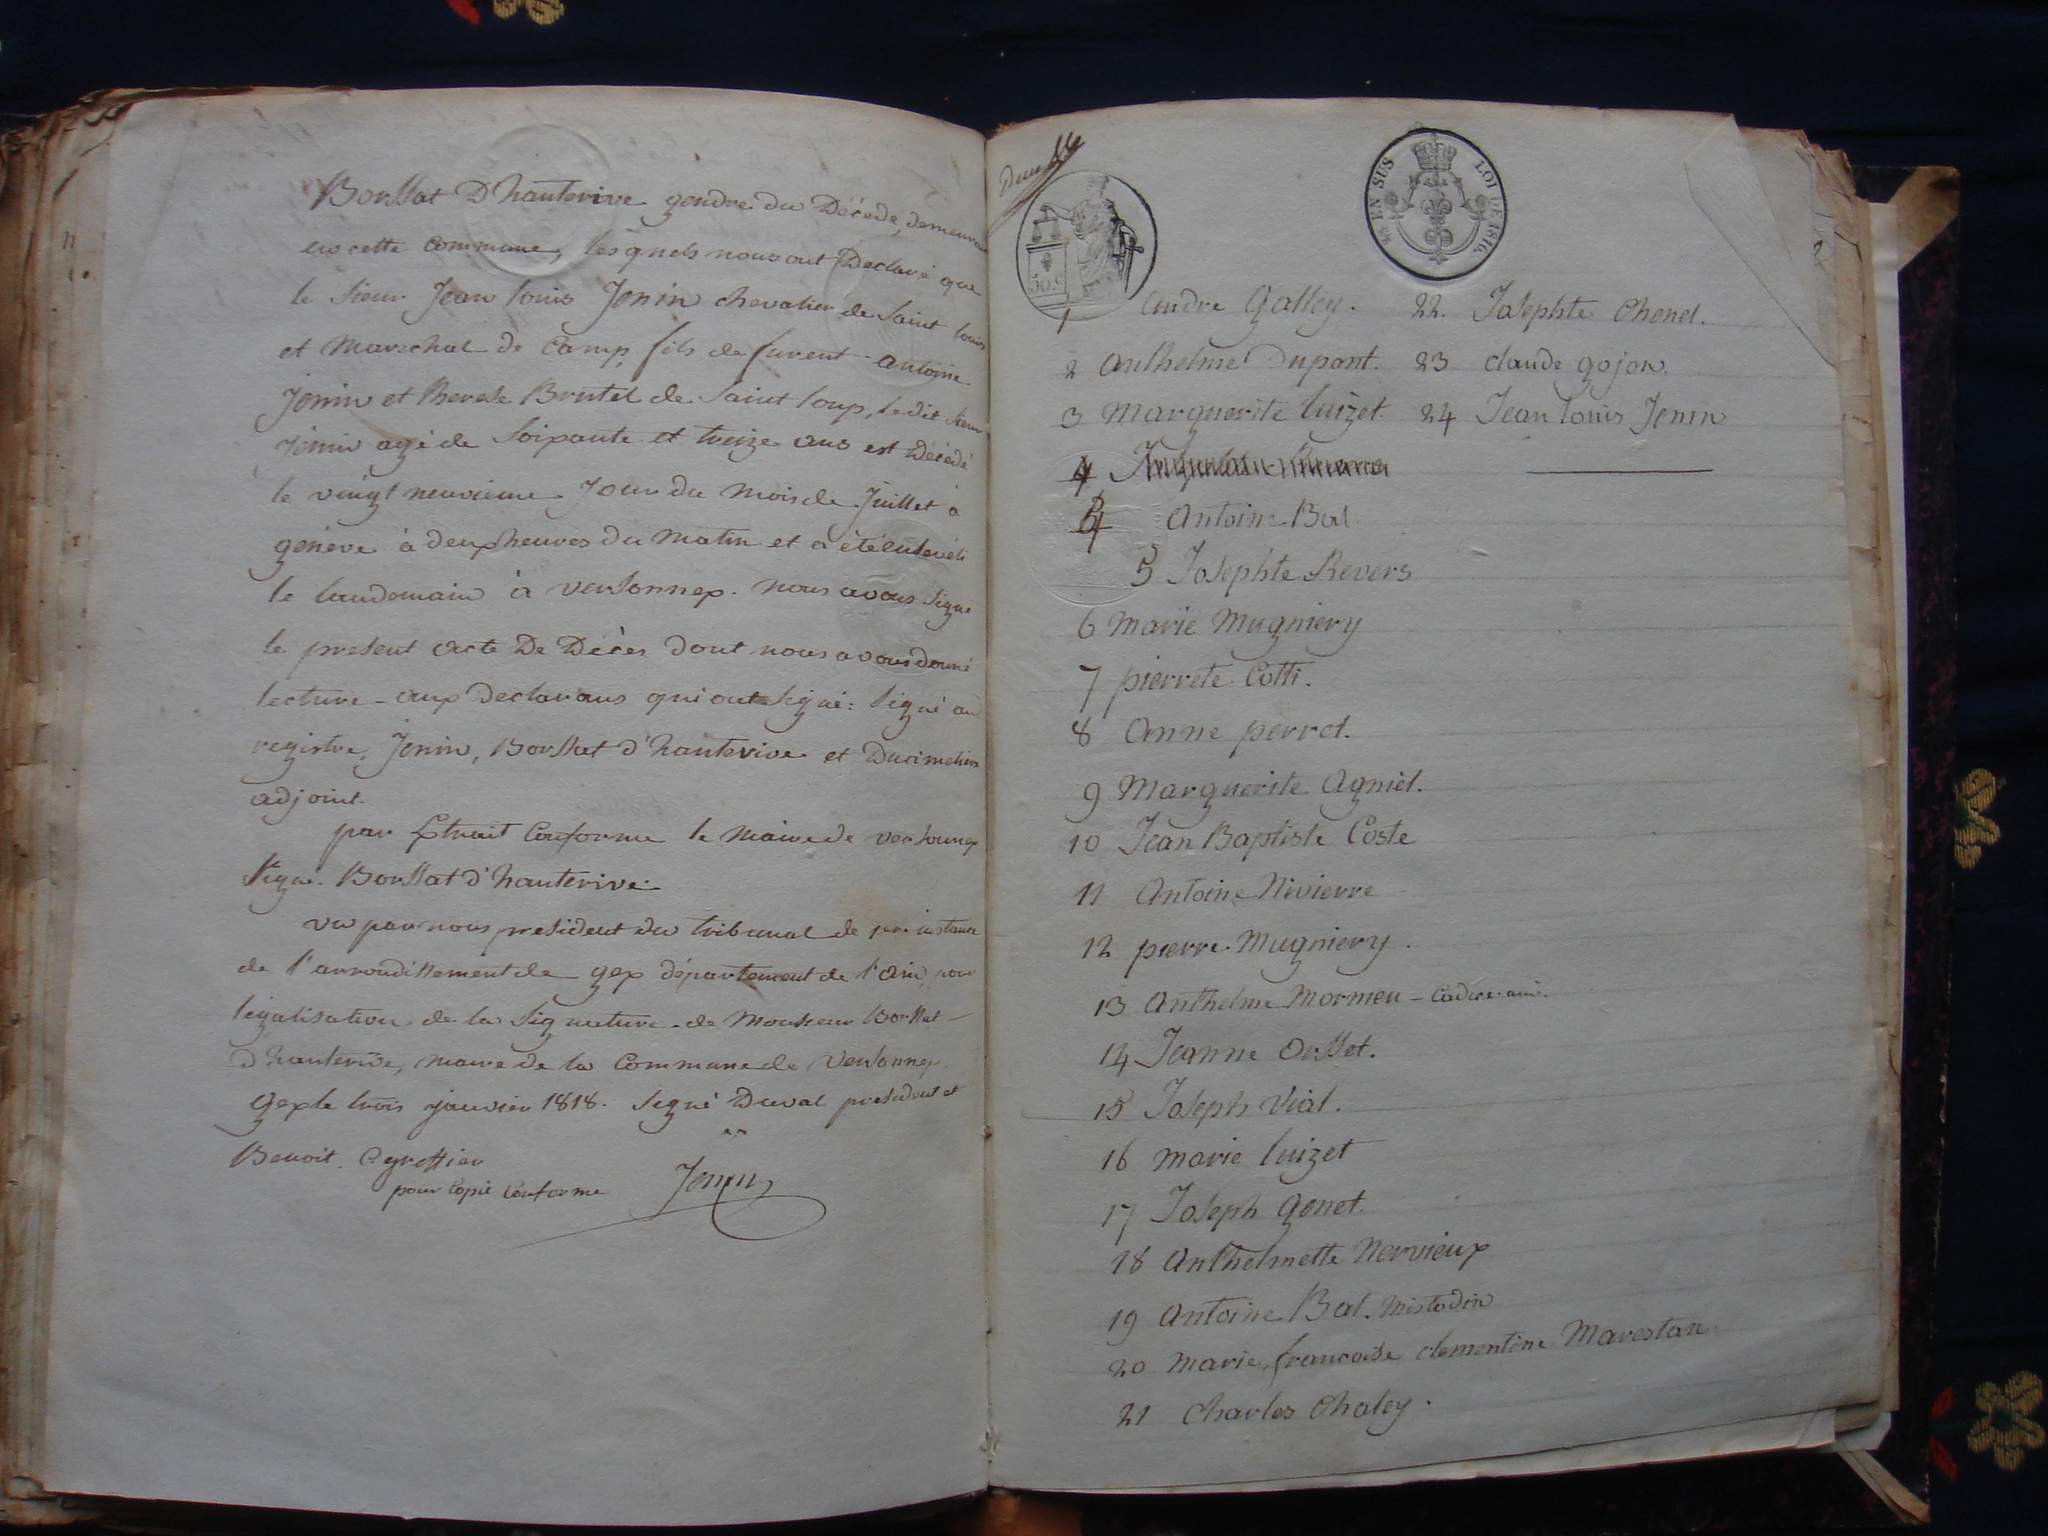 Borssat D'hauterive gendre du Décédé, demeurant
en cette commune, lesquels nous ont Déclaré que
le Sieur Jean louis Jenin chevalier de Saint louis
et Marechal de Camp, fils de furent antoine
Jenin et therese Brutel de Saint loup, le dit Sieur
Jenin agé de Soixante et treize ans est Décédé
le vingt neuvieme Jour du mois de Juillet à
genève à deux heures du Matin et a été enseveli
le landemain à versonnex. nous avons Signé
le present acte De Décès dont nous avons donné
lecture aux declarans qui ont Signé: Signé au
registre, Jenin, Borssat d'hauterive et Ducimetiere
adjoint.
par Extrait Conforme le Maire de versonnex
Signé. Borssat d'hauterive.
vu par nous président du tribunal de pre instance
de l'arrondissement de gex département de l'ain, pour
légalisation de la Signature de Monsieur Borssat
d'hauterive, maire de la Commune de Versonnex
gex le trois janvier 1818. Signé Duval président et
Benoit. C. greffier
pour Copie Conforme Jenin
Double
50.C
25 EN SUS LOI DE 1816.
1 andre Galley.
2 anthelme Dupont.
3 Marguerite luizet
4
4 Antoine Bal
5 Josephte Revers
6 Marie Mugniery
7 pierrete Cotti.
8 anne perret.
9 Marguerite Agniel.
10 Jean Baptiste Coste
11 Antoine Nivierre
12 pierre Mugniery.
13 Anthelme Mormeu -
14 Jeanne Orsset.
15 Joseph Vial.
16 marie luizet
17 Joseph Genet.
18 Anthelmette Nervieux
19 Antoine Bal. Mistodin
20 Marie francoise clementine Marestan.
21 Charles Chaley.
22. Josephte Chenel.
23 claude gojon.
24 Jean louis Jenin